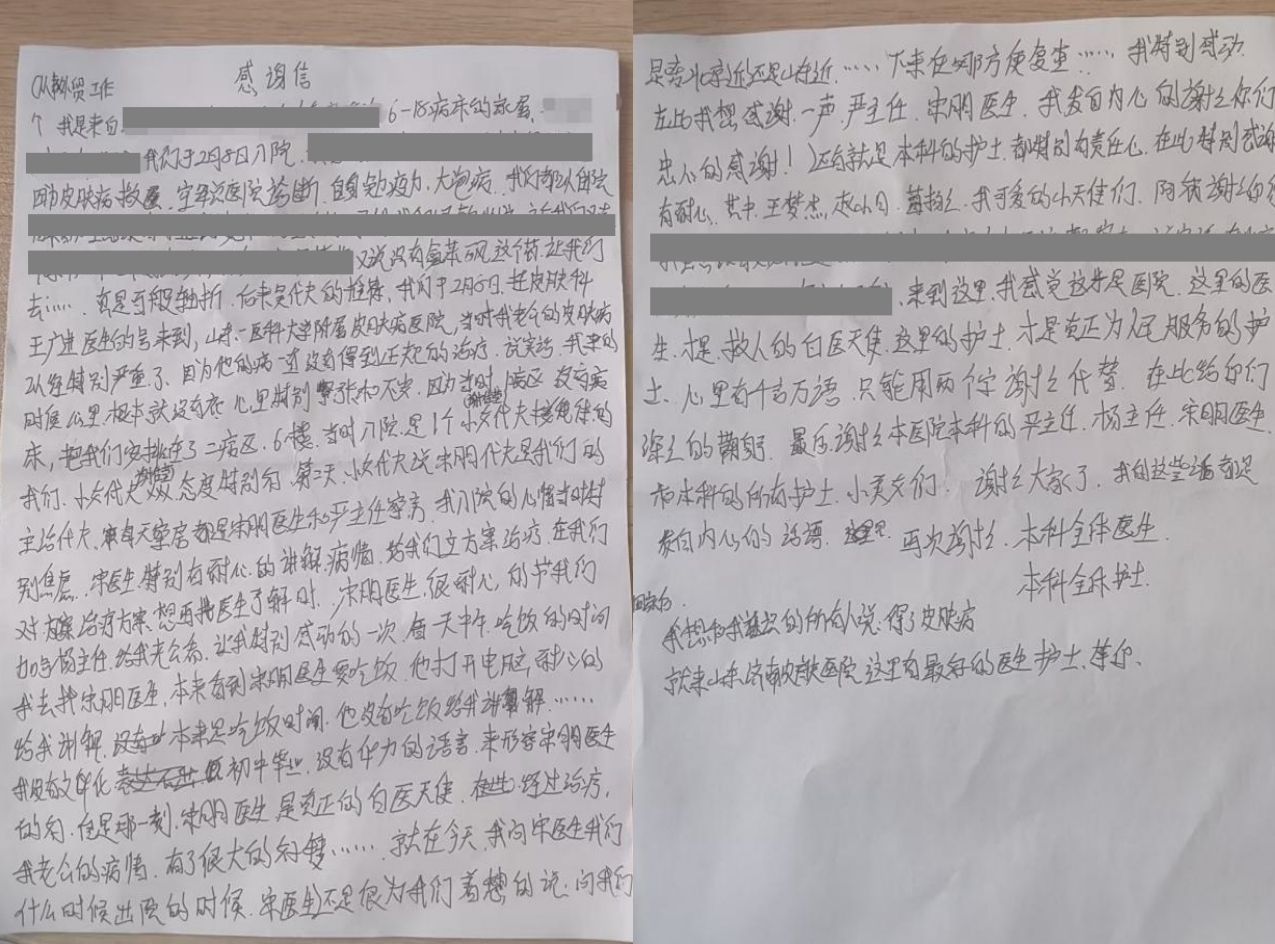 感谢信
从事外贸工作
个 我是来自 6-18病床的家属
我们于2月8日入院
因为皮肤病 医院诊断 自身免疫力 大疱病 我们都从
又说没有氨苯砜这个药 让我们
去…… 真是百般轴折 后来吴代夫的推荐 我们于2月8日 挂皮肤科
王广进医生的号来到 山东一医科大学附属皮肤病医院 当时我老公的皮肤病
以经特别严重了 因为他的病一直没有得到正规的治疗 说实话 我来的
时候公里 根本就没有底 心里特别紧张和不安 因为当时1病区 没有病
床 把我们安排在了二病区 6楼 当时入院 是1个小女代夫接待的
我们 小女代夫 态度特别好 第二天 小女代夫说宋明代夫是我们的
主治代夫 每天查房都是宋明医生和严主任查房 我入院的心情当时特
别焦虑 宋医生特别有耐心的讲解病情 给我们立方案治疗 在我们
对 治疗方案 想再找医生了解时 宋明医生 很耐心 的节我们
加 杨主任 给我老公看 让我特别感动的一次 有一天中午 吃饭的时间
我去找宋明医生 本来看到宋明医生要吃饭 他打开电脑 耐心的
给我讲解 本来是吃饭时间 他没有吃饭给我讲解……
我没有文化 初中毕业 没有华力的语言 来形容宋明医生
的好 但是那一刻 宋明医生 是真正的白医天使 经过治疗
我老公的病情 有了很大的好转…… 就在今天 我问宋医生我们
什么时候出院的时候 宋医生还是很为我们着想的说 问我们
是离北京近还是山东近…… 下来在哪方便复查…… 我特别感动
在此我想感谢一声 严主任 宋明医生 我发自内心的谢谢你们
忠心的感谢！还有就是本科的护士 都特别有责任心 在此特别感谢
有耐心 其中 王梦杰 我可爱的小天使们 阿姨谢谢你们
来到这里 我感觉这才是医院 这里的医
生 才是 救人的白医天使 这里的护士 才是真正为人民服务的护
士 心里有千言万语 只能用两个字谢谢代替 在此给你们
深深的鞠躬 最后谢谢本医院本科的严主任 杨主任 宋明医生
和本科的所有护士 小美女们 谢谢大家了 我的这些话都是
发自内心的话语 再次谢谢 本科全体医生
本科全体护士
我想和我认识的所有人说：得了皮肤病
就来山东济南皮肤医院 这里有最好的医生护士 等你